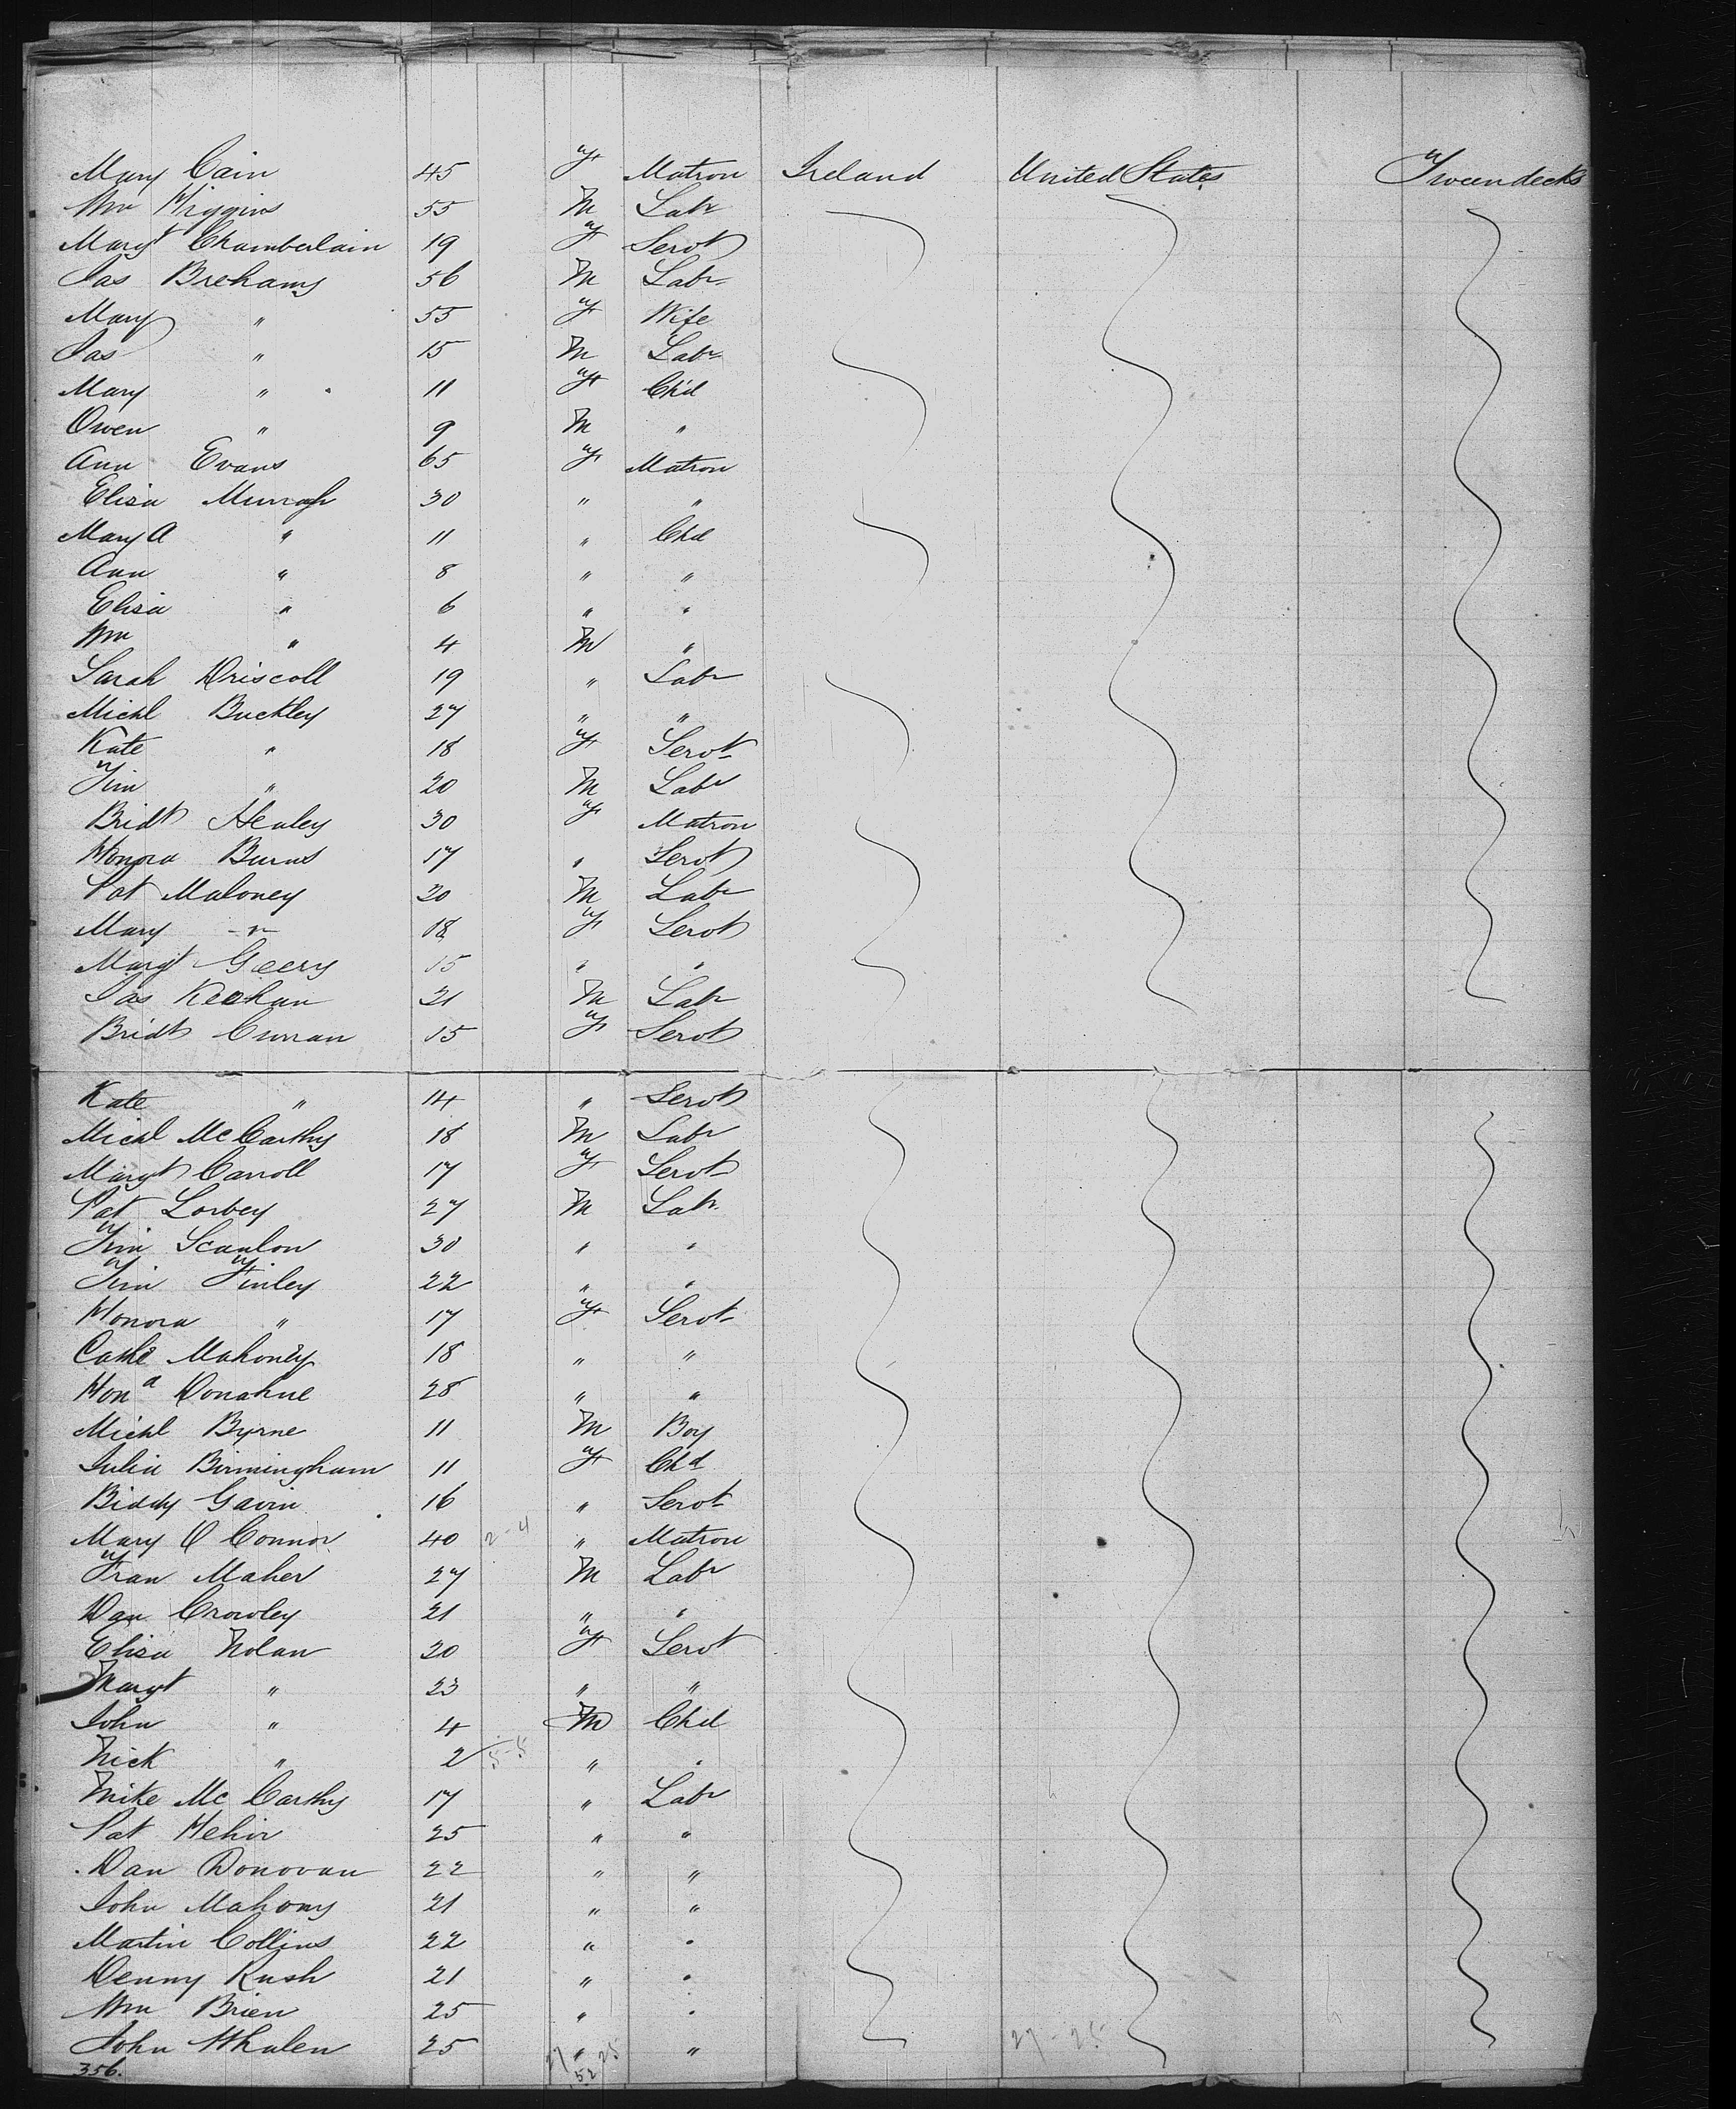 Mary Cain 45 F Matron Ireland United States Tweendecks
Wm Higgins 55 M Labr
Margt Chamberlain 19 F Servt
Jas Brehany 56 M Labr
Mary " 55 F Wife
Jas " 15 M Labr
Mary " 11 F Ch'd
Owen " 9 M "
Ann Evans 65 F Matron
Elisa Murragh 30 " "
Mary A " 11 " Chd
Ann " 8 " "
Elisa " 6 " "
Wm " 4 M "
Sarah Driscoll 19 " Labr
Michl Buckley 27 " "
Kate " 18 F Servt
Tim " 20 M Labr
Bridt Healey 30 F Matron
Honora Burns 17 " Servt
Pat Maloney 20 M Labr
Mary " 18 F Servt
Margt Geery 15 " "
Jas Keohan 21 M Labr
Bridt Curran 15 F Servt
Kate " 14 " Servt
Michl McCarthy 18 M Labr
Margt Carroll 17 F Servt
Pat Lorbey 27 M Labr
Tim Scanlon 30 " "
Tim Finley 22 " "
Honora " 17 F Servt
Cathe Mahoney 18 " "
Hona Donahue 28 " "
Michl Byrne 11 M Boy
Julia Birmingham 11 F Chd
Biddy Gavin 16 " Servt
Mary O Connor 40 2-4 " Matron
Fran Maher 27 M Labr
Dan Crowley 21 " "
Elisa Nolan 20 F Servt
Margt " 23 " "
John " 4 M Chd
Nick " 2 5-5 " "
Mike McCarthy 17 " Labr
Pat Hehir 25 " "
Dan Donovan 22 " "
John Mahony 21 " "
Martin Collins 22 " "
Denny Rush 21 " "
Wm Brien 25 " "
John Whalen 25 " "
27 25 27-25
356. 52